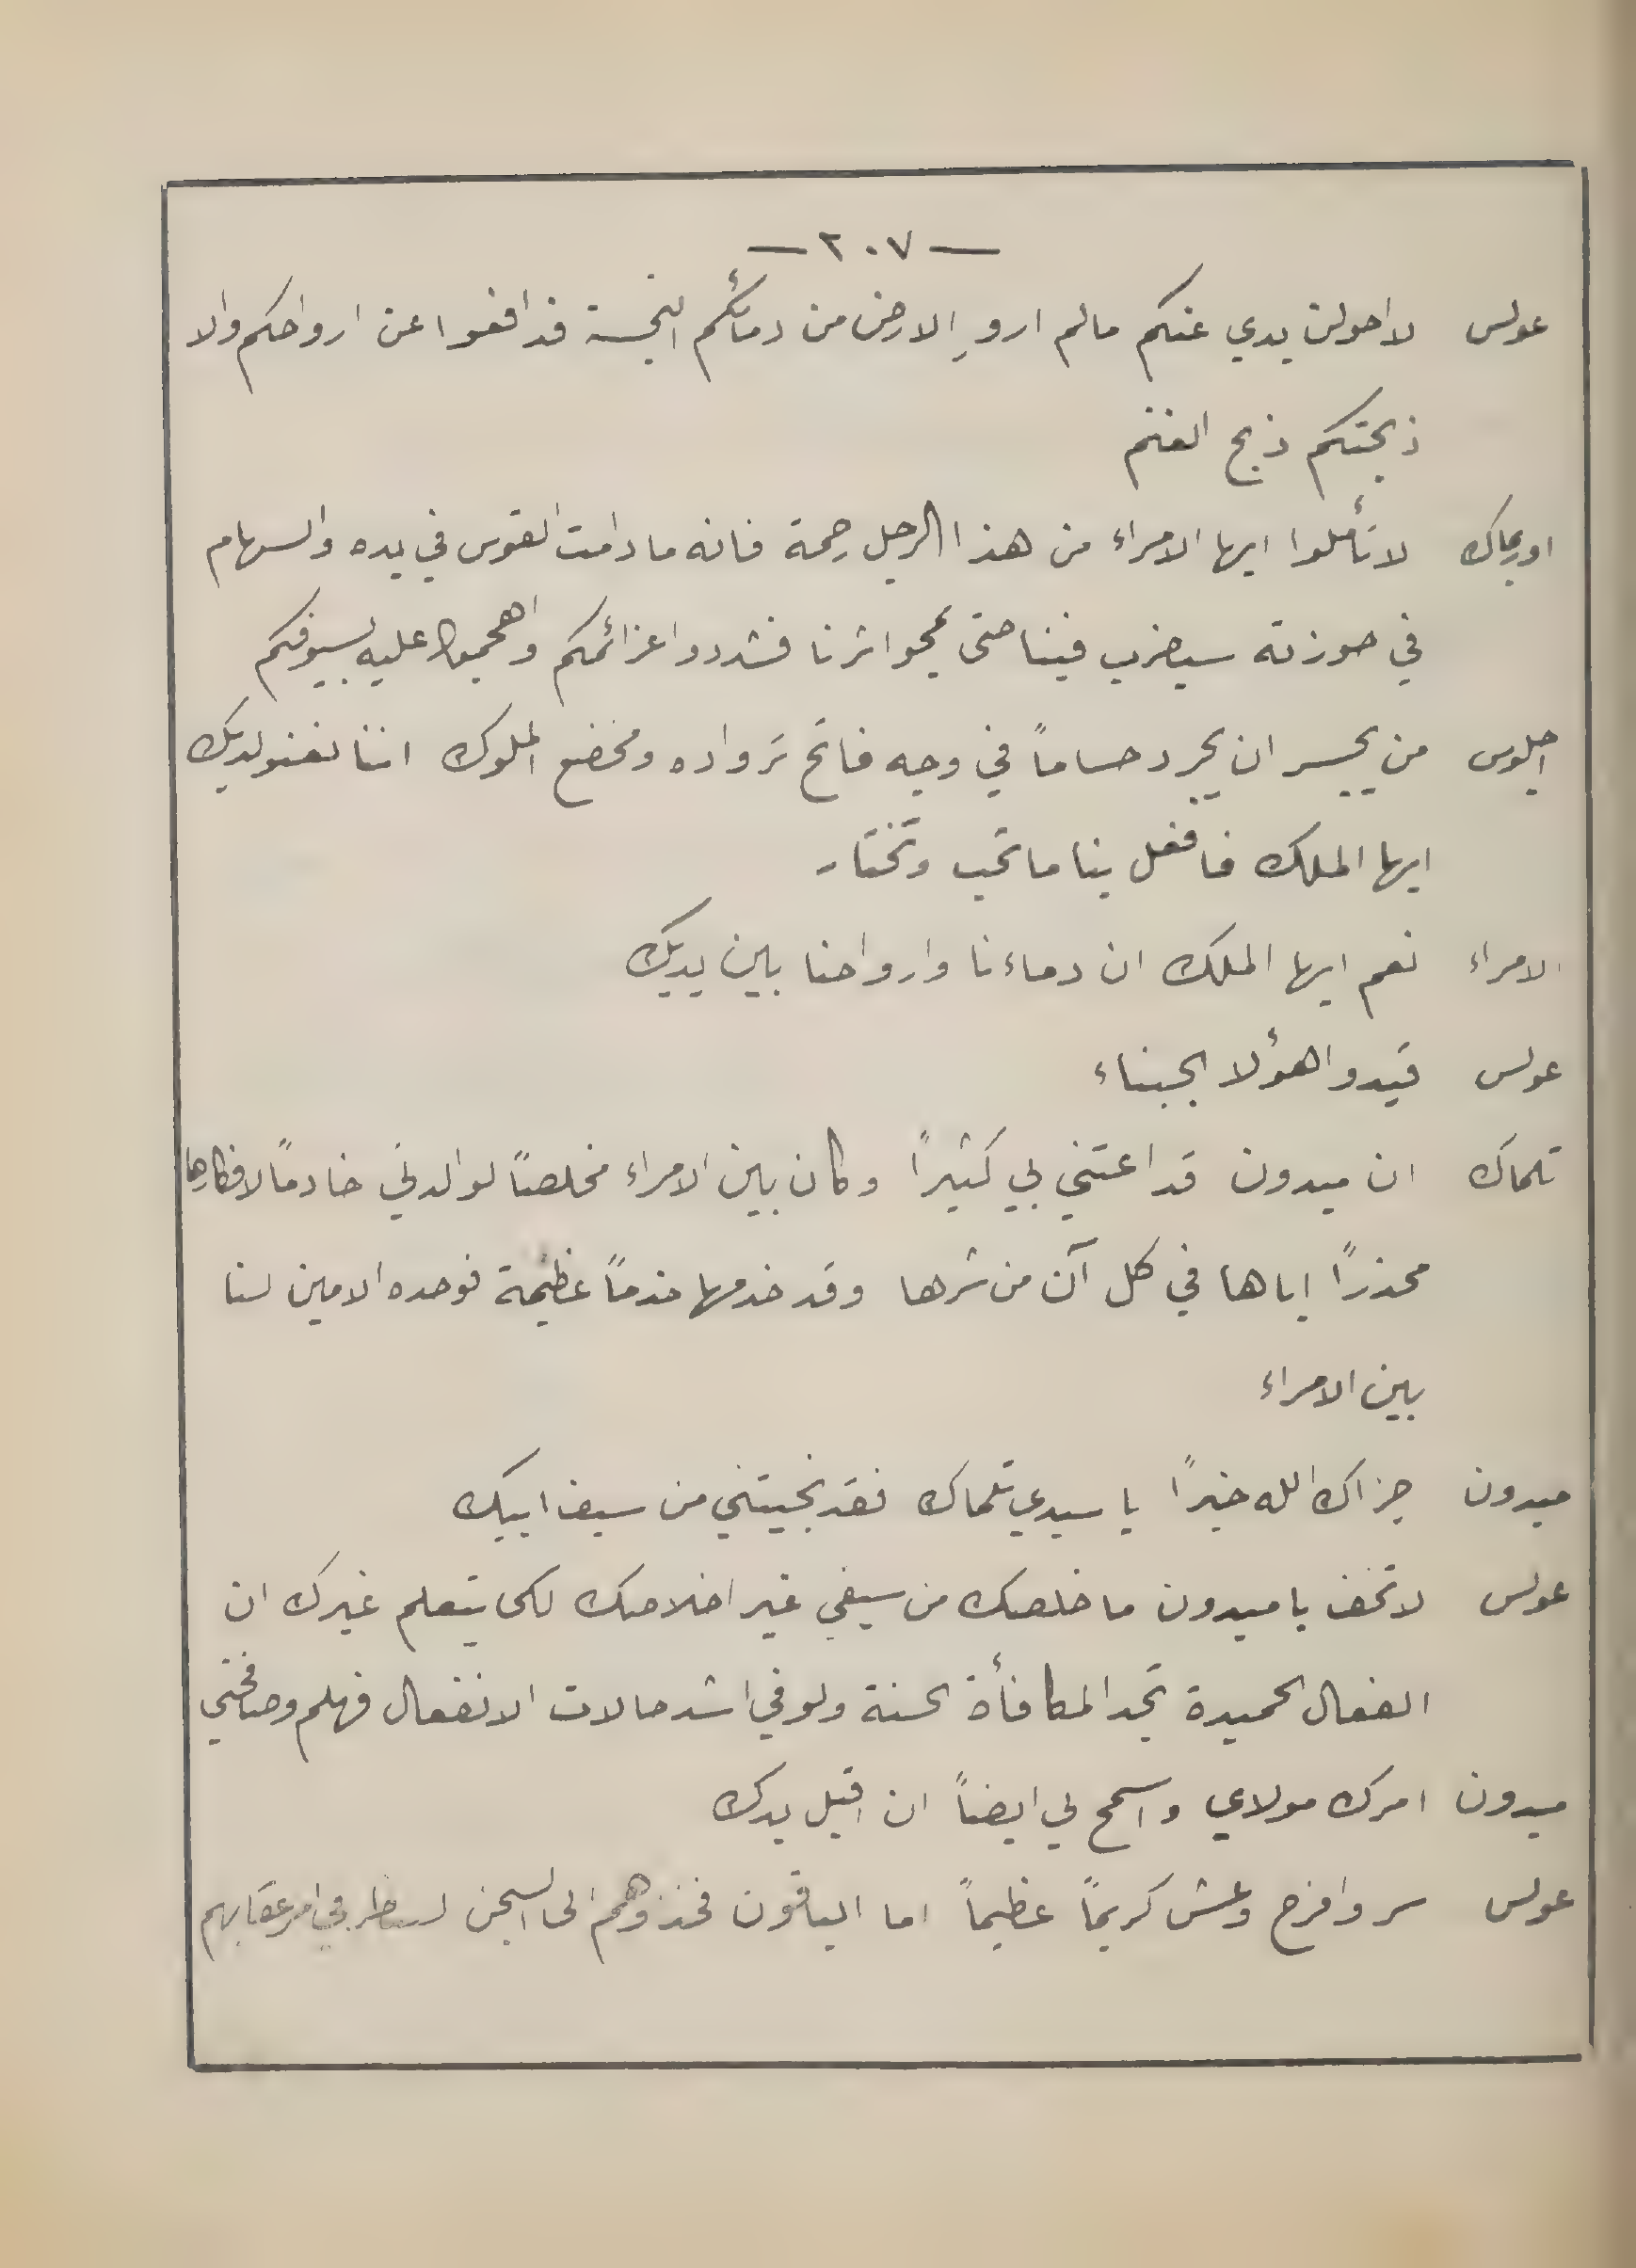 — ٢٠٧ —
عولس لا احولن يدي عنكم مالم اروِ الارض من دمائكم النجسة فدافعوا عن ارواحكم والا
ذبحتكم ذبح الغنم
اوريماك لا تأملوا ايها الامراء من هذا الرجل رحمة فانه ما دامت القوس في يده والسهام
في حوزته سيضرب فينا حتى يمحو اثرنا فشددوا عزائمكم واهجموا عليه بسيوفكم
اجلوس من يجسر ان يجرد حساماً في وجه فاتح تروادة ومخضع الملوك اننا نعنو لديك
ايها الملك فافعل بنا ما تحب وتختار
الامراء نعم ايها الملك ان دماءنا وارواحنا بين يديك
عولس قيدوا هؤلا الجبناء
تلماك ان ميدون قد اعتنى بي كثيراً وكان بين الامراء مخلصاً لوالدتي خادماً لافكارها
محذراً اياها في كل آن من شرها وقد خدمها خدماً عظيمة فوحده الامين لنا
بين الامراء
ميدون جزاك الله خيراً يا سيدي تلماك فقد نجيتني من سيف ابيك
عولس لا تخف يا ميدون ما خلصك من سيفي غير اخلاصك لكي يتعلم غيرك ان
الفعال الحميدة تجد المكافأة الحسنة ولو في اشد حالات الانفعال فهلم وصافحني
ميدون امرك مولاي واسمح لي ايضاً ان اقبل يدك
عولس سر وافرح وعش كريماً عظيماً اما الباقون فخذوهم الى السجن لننظر في امر عقابهم